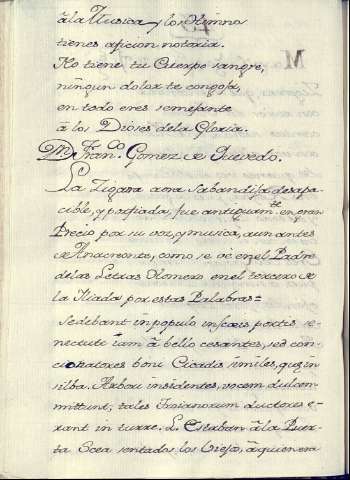 â la Musica y los Himno
tienes aficion notoria.
No tiene tu Cuerpo sangre,
ningun dolor te congoja,
en todo eres semejante
â los Dioses dela Gloria.
Dn. Franco. Gomez de Quevedo.
La Zigarra aora Sabandija desapa-
cible, y porfiada, fue antiguamte. en gran
Precio por su voz, y musica, aun antes
de Anacreonte, como se vé en el Padre
delas Letras Homero en el tercero de
la Iliada por estas Palabras =
Sedebant in populo in scæis portis se-
nectute iam â bello cesantes, sed con-
cionatores boni Cicadis similes, quæ in
silba. Arbori insidentes, vocem dulcem
mittunt; tales Troianorum ductores e-
rant in turre. Estaban â la Puer-
ta Scea sentados los Viejos, â quienera